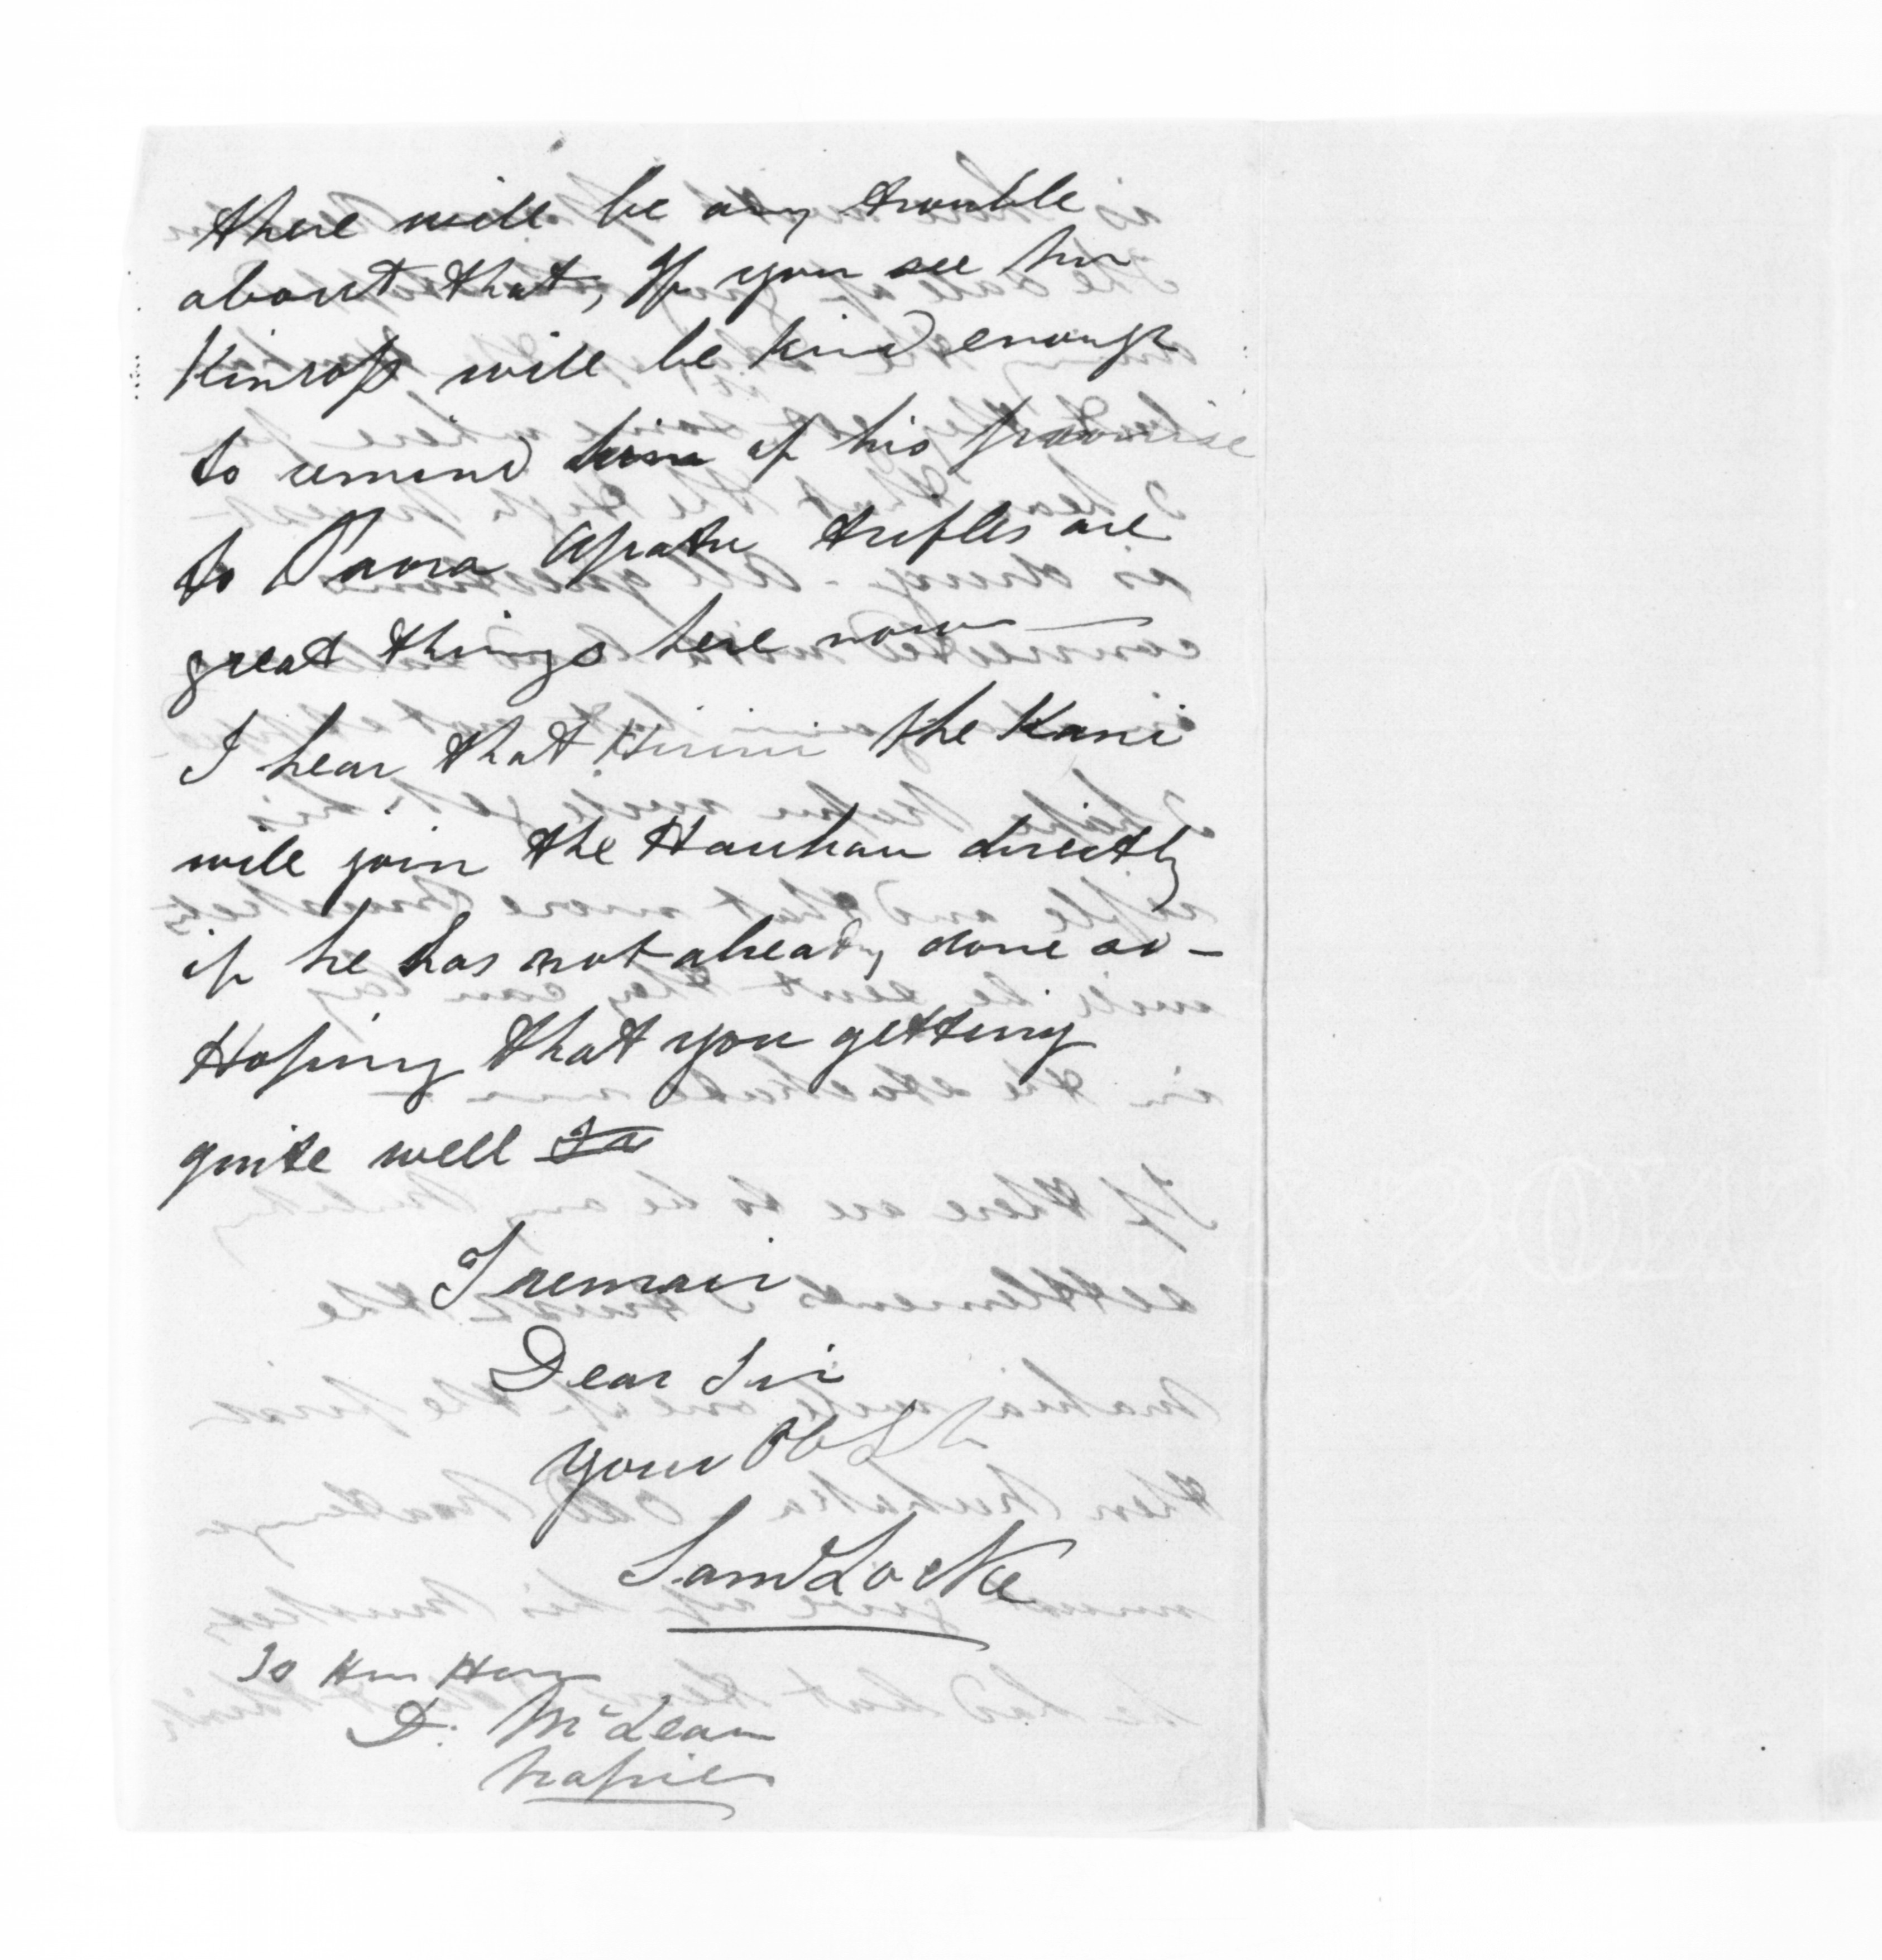 there will be any trouble
about that, If you see Mr
Kinross will be kind enough
to remind him of his promise
to Paora Apatu trifles are
great things here now —
I hear that Hirini the Kani
will join the Hauhau directly
if he has not already done so —
Hoping that you getting
quite well
I remain
Dear Sir
Your Obt
Saml Locke
To Hon
D. McLean
Napier